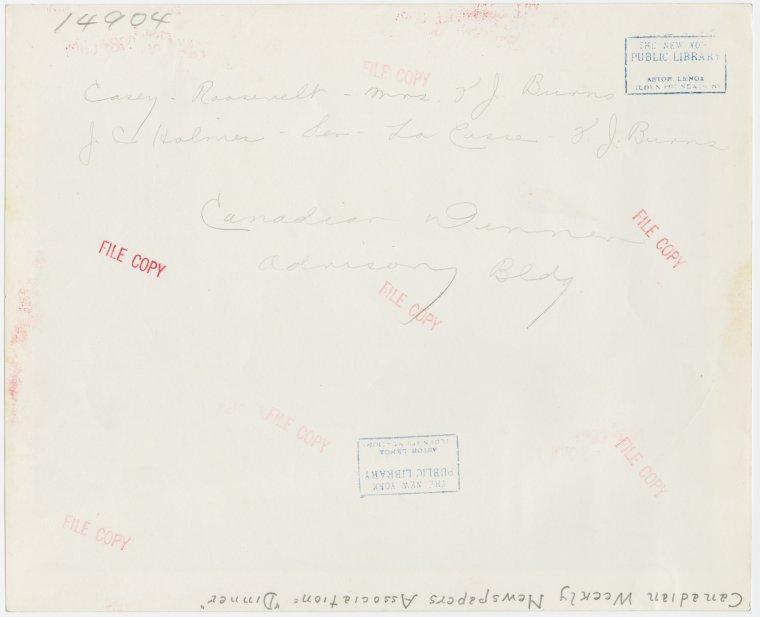 14904
THE NEW YO
PUBLIC LIBRARY
ASTOR LENOX
TILDEN FOUNDATIONS
FILE COPY
Casey - Roosevelt - Mrs K J Burns
J. C. Holmes - Sen - La Cusse - K. J. Burns
Canadian Dinner
Advisory Bldg.
FILE COPY
FILE COPY
FILE COPY
FILE COPY
FILE COPY
THE NEW YORK
PUBLIC LIBRARY
ASTOR LENOX
TILDEN FOUNDATIONS
FILE COPY
Canadian Weekly Newspapers Association - "Dinner"